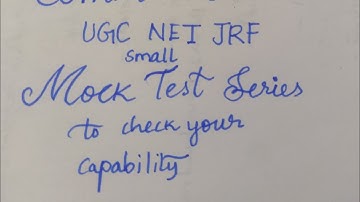 UGC NET JRF
small
Mock Test Series
to check your
capability